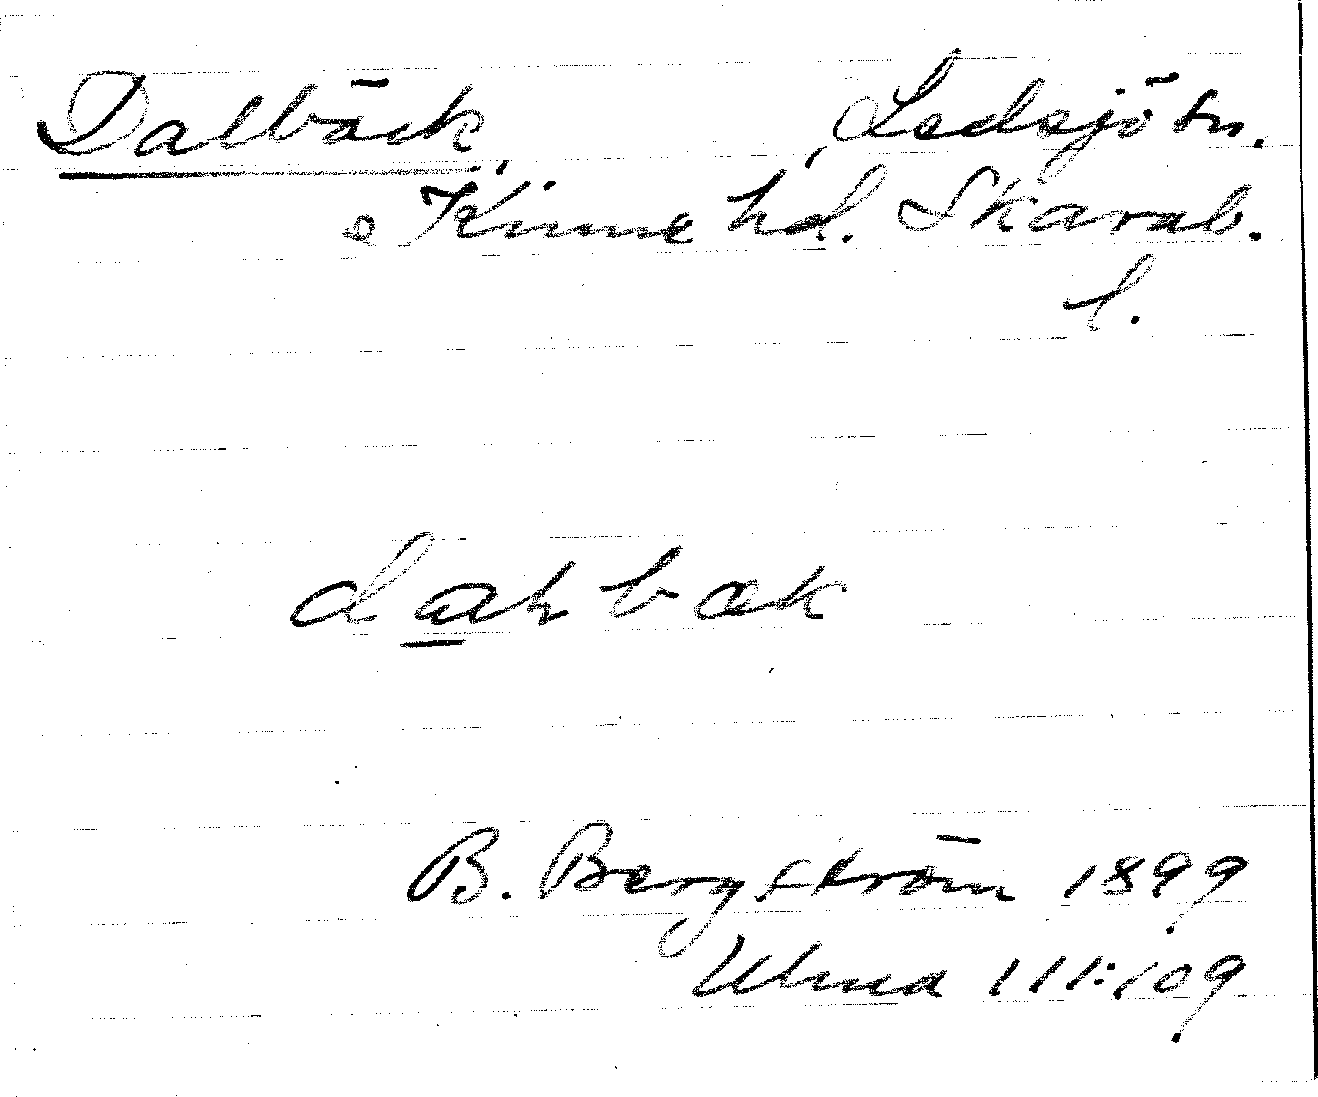 Dalbäck, Ledsjö sn.,
Kinne hd. Skarab.
l.
dahbæk
B. Bergström 1899
Ulma 111:109